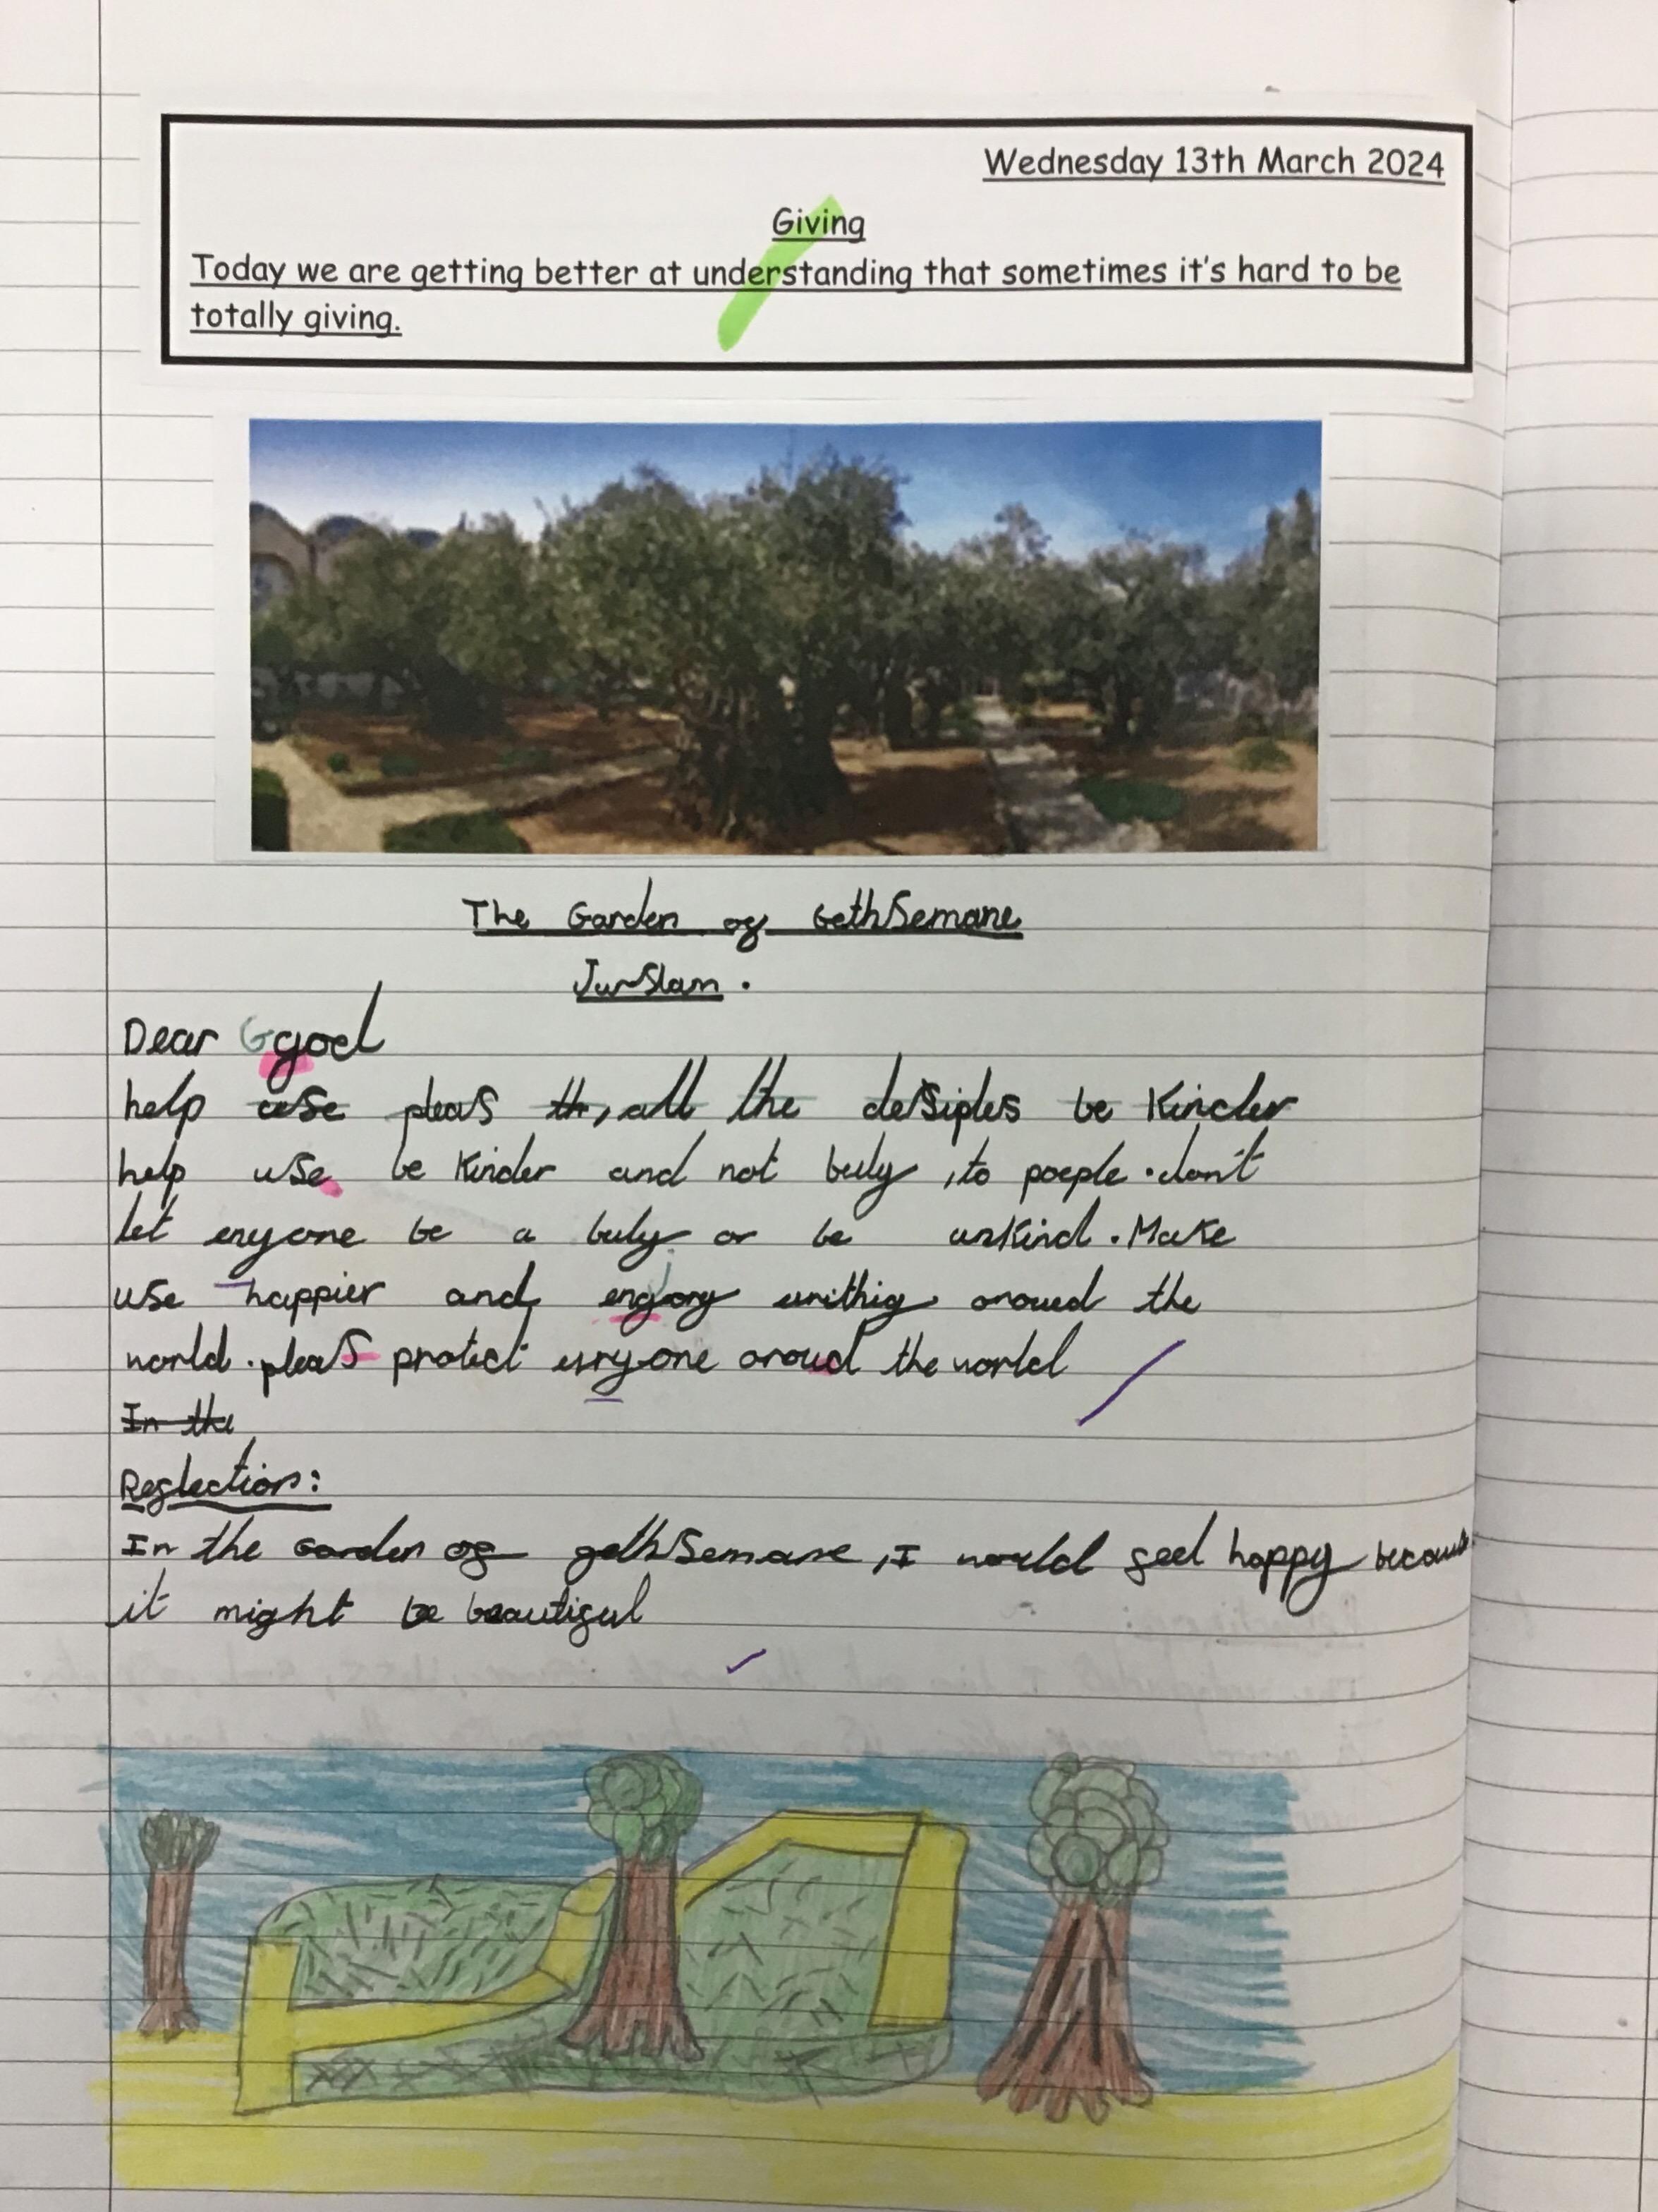 Wednesday 13th March 2024
Giving
Today we are getting better at understanding that sometimes it's hard to be
totally giving.
The Garden of GethSemane
JurSlam.
Dear Ggod
help use pleas th, all the desiples be Kinder
help use be Kinder and not buly, to poeple. don't
let enyone be a buly or be unkind. Make
use happier and enjory evrithig aroued the
world. pleas protect evryone aroud the world
In the
Reflection:
In the Garden of gethSemane, I would feel happy because
it might be beautiful